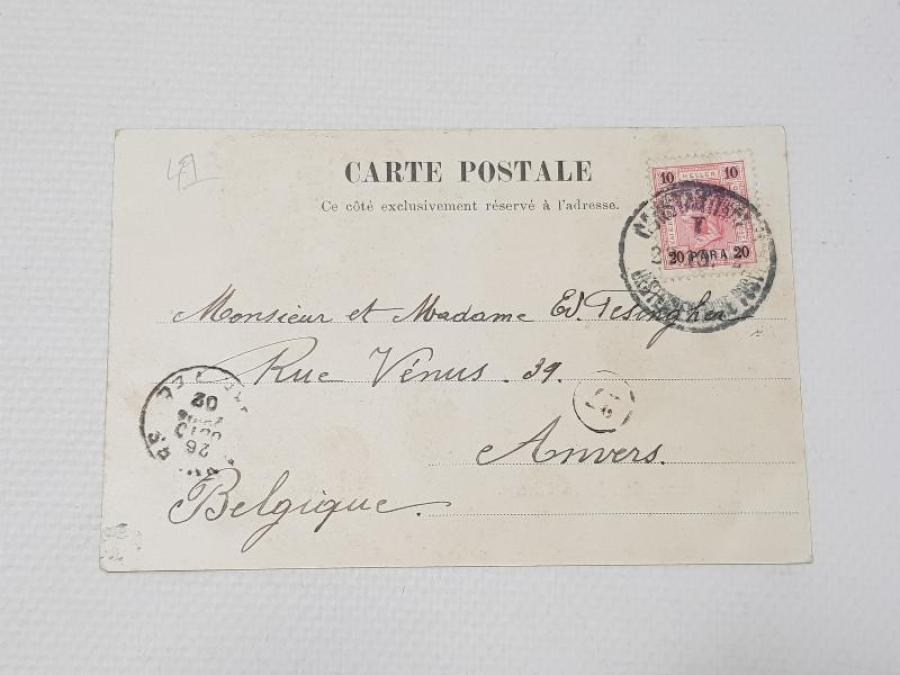 CARTE POSTALE
Ce côté exclusivement réservé à l'adresse.
10 HELLER 10
20 PARA 20
Monsieur et Madame Ed. Tesingher
Rue Vénus. 39.
Anvers.
Belgique.
26
OCTO
02